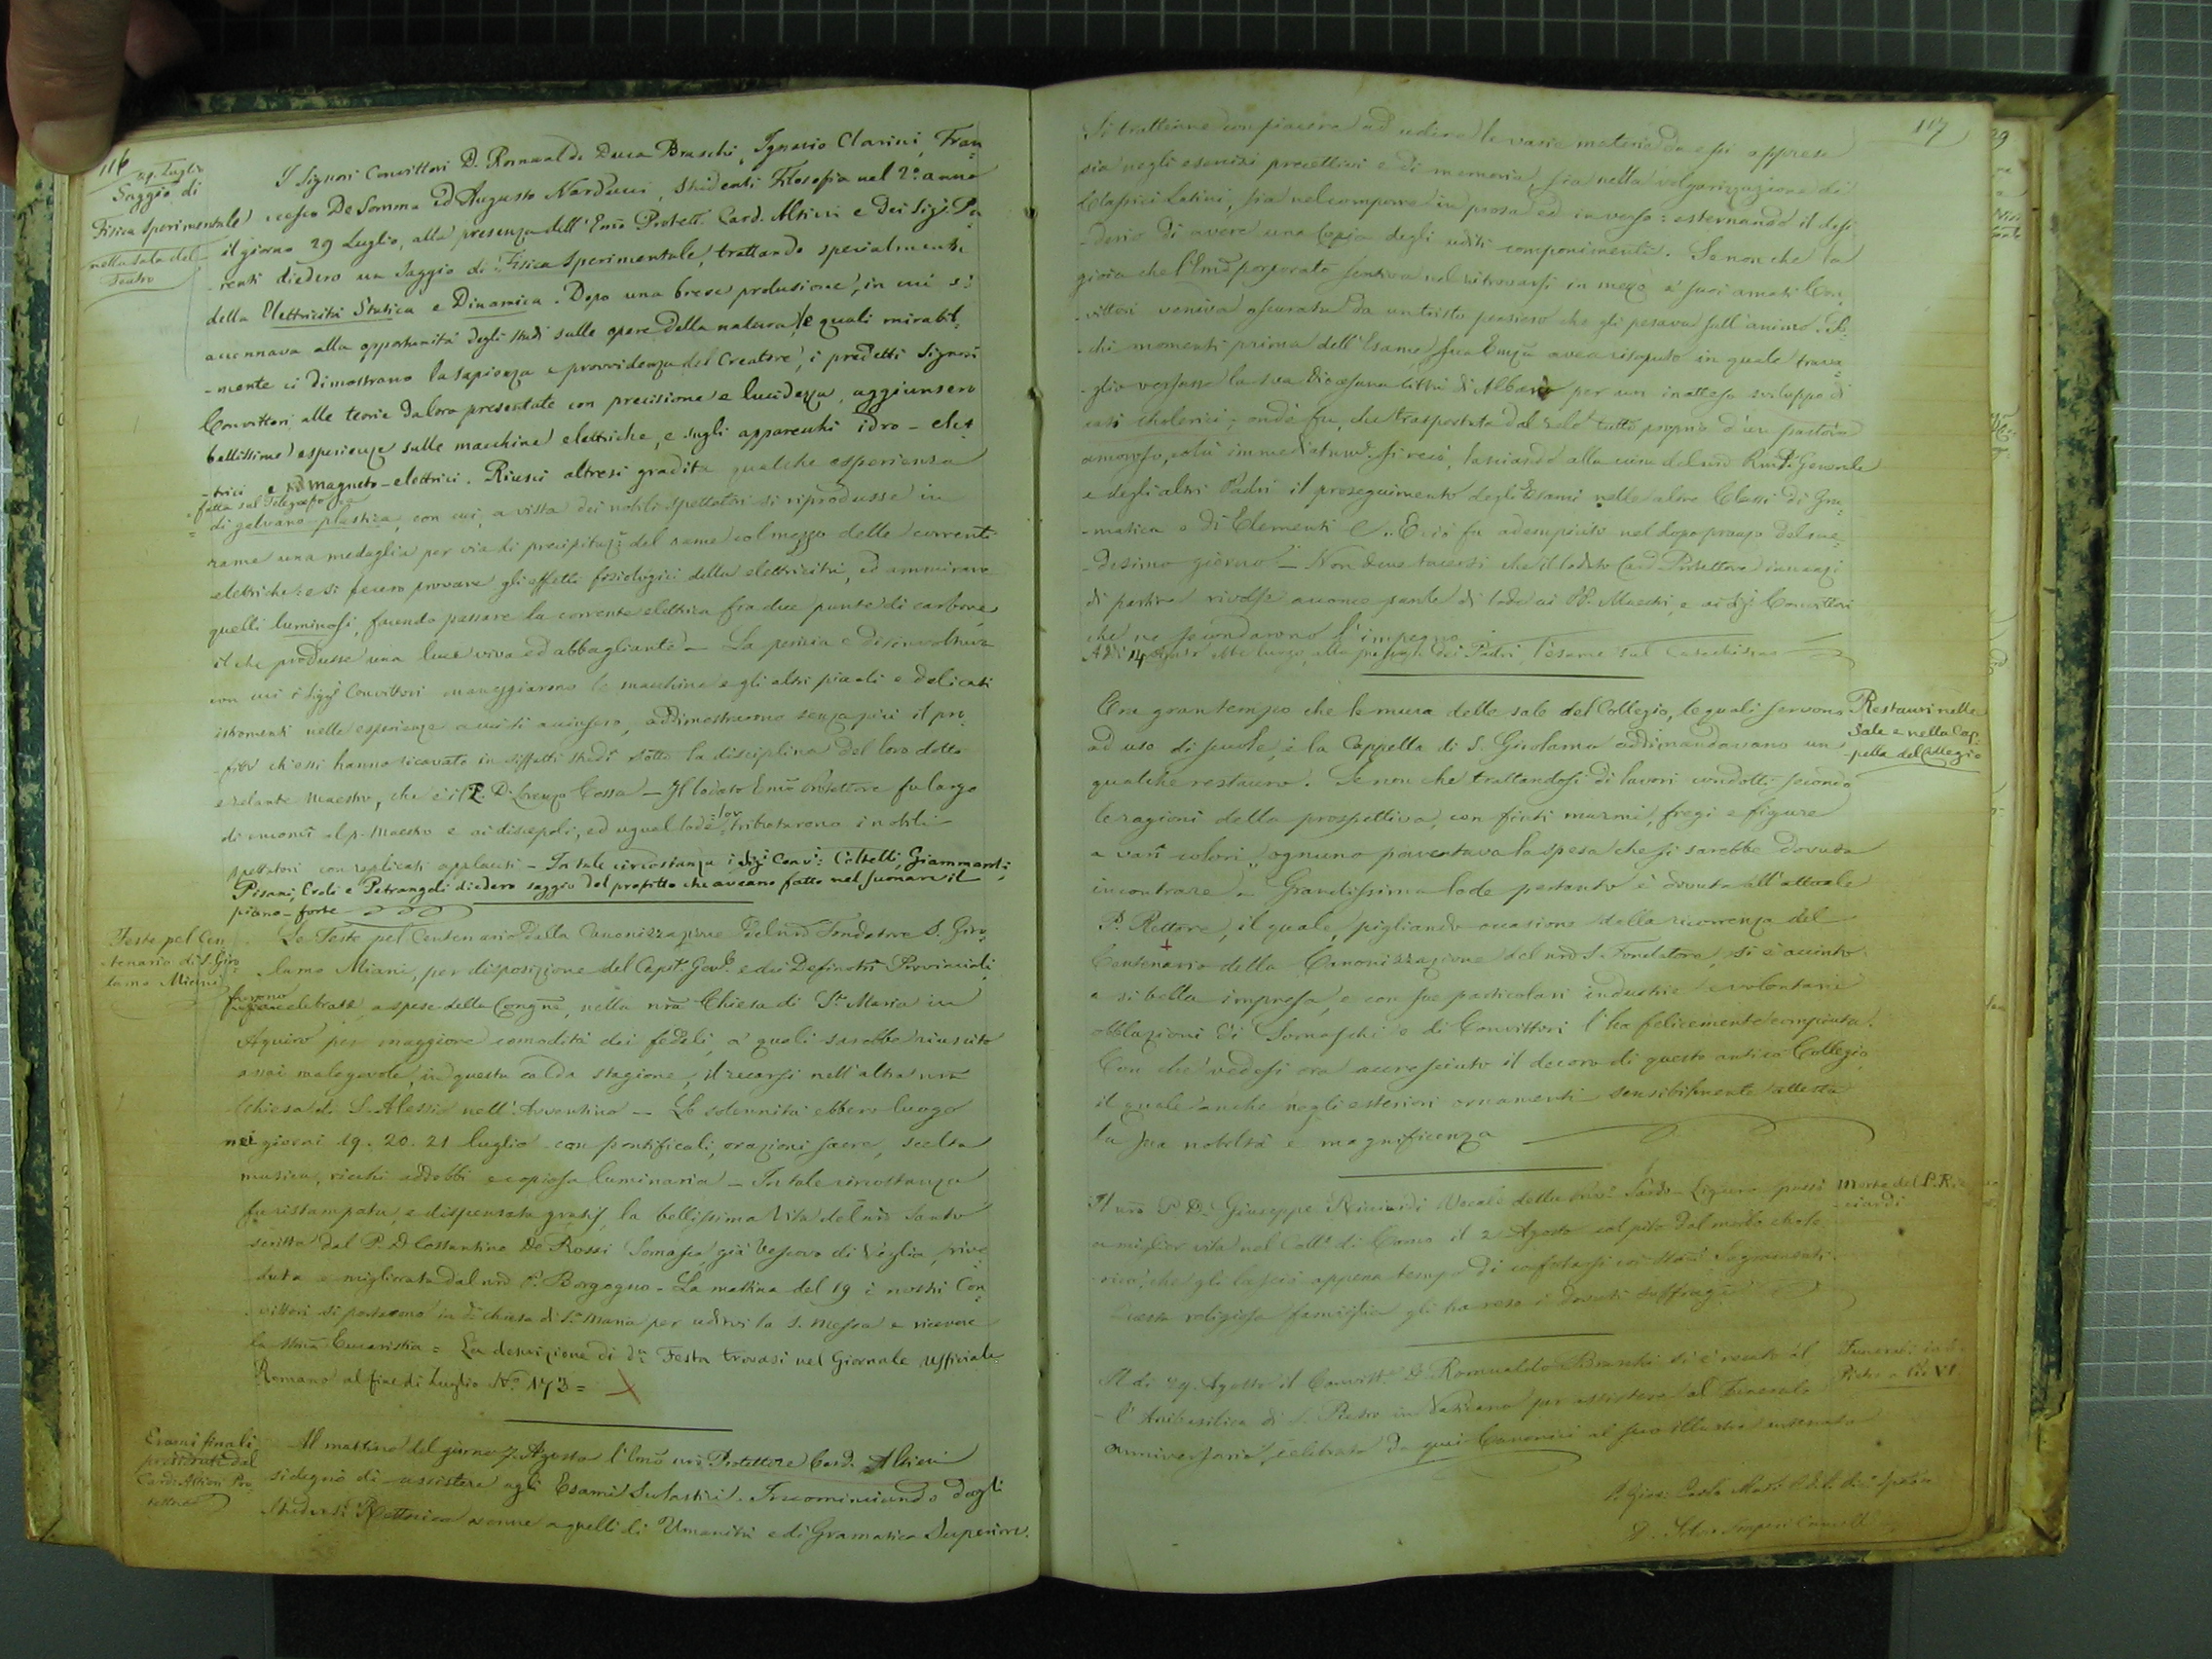 116
29. Luglio
Saggio di
Fisica Sperimentale
nella sala del
Teatro
I Signori Convittori D. Romualdo Duca Braschi, Ignazio Clarini, Fran
cesco De Somma ed Augusto Narducci, studenti Filosofia nel 2º anno
il giorno 29 Luglio, alla presenza dell' Emo Protett. Card. Altieri e dei Sigi Pa
-renti diedero un Saggio di Fisica Sperimentale, trattando specialmente
della Elettricità Statica e Dinamica. Dopo una breve prolusione, in cui s'
accennava alla opportunità degli studi sulle opere della natura, le quali mirabil-
-mente ci dimostrano la sapienza e provvidenza del Creatore, i predetti Signori
Convittori alle teorie da loro presentate con precisione e lucidezza, aggiunsero
bellissime esperienze sulle macchine elettriche, e sugli apparecchi idro-elet
-trici e magneto-elettrici. Riuscì altresì gradita qualche esperienza
fatta sul Telegrafo
di galvano-plastica, con cui, a vista dei nobili spettatori si riprodusse in
rame una medaglia per via di precipitaz: del rame col mezzo delle correnti
elettriche: e si fecero provare gli effetti fisiologici della elettricità, ed ammirare
quelli luminosi, facendo passare la corrente elettrica fra due punte di carbone,
il che produsse una luce viva ed abbagliante - La perizia e disinvoltura
con cui i Sigri Convittori maneggiarono le macchine e gli altri piccoli e delicati
istromenti nelle esperienze addimostrarono senza più il pro
-fitto ch'essi hanno ricavato in siffatti studi sotto la disciplina del loro dotto
e zelante Maestro, che è il P. D. Lorenzo Cossa - Il lodato Emo Protettore fu largo
di encomi al p. Maestro e ai discepoli, ed ugual lode lor tributarono i nobili
spettatori con replicati applausi - In tale circostanza i Sigi Convi: Coltelli, Giammarti
Pisani, Erdi e Petrangeli diedero saggio del profitto che aveano fatto nel suonare il
piano-forte
Feste pel Cen
tenario di S. Giro
lamo Miani
Le Feste pel Centenario della Canonizzazione del nro Fondatore S. Giro
lamo Miani, per disposizione del Capit. Genle e dei Definitri Provinciali,
furono celebrate a spese della Congne, nella nra Chiesa di Sta Maria in
Aquiro per maggiore comodità dei fedeli, a' quali sarebbe riuscito
assai malagevole, in questa calda stagione, il recarsi nell'altra nra
Chiesa di S. Alessio nell'Aventino - Le solennità ebbero luogo
nei giorni 19. 20. 21 luglio con pontificali, orazioni sacre, scelta
musica, ricchi addobbi e copiosa luminaria - In tale circostanza
fu ristampata, e dispensata gratis, la bellissima Vita del nro Santo
scritta dal P. D. Costantino De Rossi Somasco, già Vescovo di Veglia, rive
duta e migliorata dal nro P. Borgogno - La mattina del 19 i nostri Con
vittori si portarono in da chiesa di Sta Maria per udirvi la S. Messa e ricevere
la Sma Eucaristia = La descrizione di da Festa trovasi nel Giornale Ufficiale
Romano al fine di Luglio No 173 =
Esami finali
presieduti dal
Card. Altieri Pro
tettore
Al mattino del giorno 7. Agosto l'Emo nro Protettore Card. Altieri
si degnò di assistere agli Esami Scolastici. Incominciando dagli
Studenti Rettorica venne a quelli di Umanità e di Gramatica Superiore.
117
Si trattenne con piacere ad udire le varie materie da essi apprese
sia negli esercizi precettivi e di memoria, sia nella volgarizzazione di
Classici Latini, sia nel comporre in prosa ed in verso: esternando il desi
-derio di avere una Copia degli uditi componimenti. Se non che la
gioia che l'Emo porporato sentiva nel ritrovarsi in mezzo a' suoi amati Con
-vittori veniva oscurata da un tristo pensiero che gli pesava sull'animo. Po
-chi momenti prima dell'Esame, Sua Emza avea risaputo in quale trava
-glio versasse la sua Diocesana Città di Albano per un inatteso sviluppo di
casi cholerici; onde fu, che trasportato dal zelo tutto proprio d'un pastore
amoroso, colà immediatamte si recò, lasciando alla cura del nro Rmo P. Generale
e degli altri Padri il proseguimento degli Esami nelle altre Classi di Gra
-matica e di Elementi. E ciò fu adempiuto nel dopo pranzo del me
-desimo giorno - Non deve tacersi che il lodato Card Protettore innanzi
di partire rivolse acconce parole di lode ai PP. Maestri, e ai Sigi Convittori
che ne secondarono l'impegno
Adi 14 ebbe luogo, alla dei Padri, l'esame sul Catechismo
Restauri nelle
Sale e nella Cap
-pella del Collegio
Era gran tempo che le mura delle sale del Collegio, le quali servono
ad uso di scuole, e la Cappella di S. Girolamo addimandavano un
qualche restauro. Se non che trattandosi di lavori condotti secondo
le ragioni della prospettiva, con finti marmi, fregi e figure
a varî colori, ognuno paventava la spesa che si sarebbe dovuta
incontrare. Grandissima lode pertanto è dovuta all'attuale
P. Rettore, il quale, pigliando occasione della ricorrenza del
Centenario della Canonizzazione del nro S. Fondatore, si è accinto
a sì bella impresa, e con sue particolari industrie e volontarie
obblazioni di Somaschi e di Convittori l'ha felicemente compiuta.
Con che vedesi ora accresciuto il decoro di questo antico Collegio,
il quale anche negli esteriori ornamenti sensibilmente attesta
la sua nobiltà e magnificenza
Morte del P. Ric
-ciardi
Il nro P. D. Giuseppe Ricciardi Vocale della Provi Sardo-Ligure passò
a miglior vita nel Colle di Como il 2 Agosto colpito dal morbo chole
rico, che gli lasciò appena tempo di confortarsi coi Smi Sagramenti.
Questa religiosa famiglia gli ha reso i dovuti suffragi
Funerali in S.
Pietro a Pio VI
A dì 29. Agosto il Convitt. D. Romualdo Braschi si è recato al
l'Arcibasilica di S. Pietro in Vaticano per assistere al Funerale
anniversario, celebrato da quei Canonici al suo illustre antenato